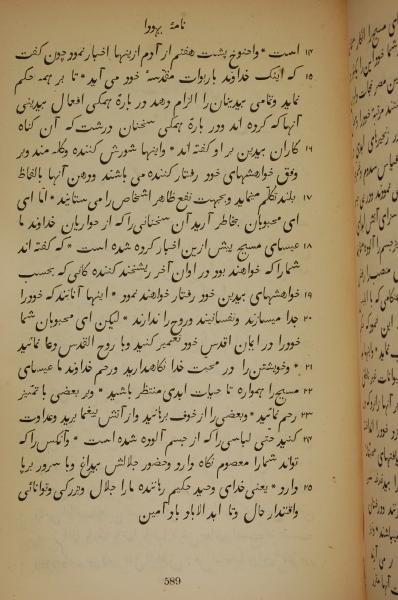 نامهٔ یهودا
۱۴ است * واخنوخ پشت هفتم از آدم از اینها اخبار نمود چون گفت
۱۵ که اینک خداوند با ربوات مقدسهٔ خود می آید * تا بر همه حکم
نماید وتمامی بیدینان را الزام دهد در بارهٔ همگی افعال بیدینی
آنها که کرده اند ودر بارهٔ همگی سخنان درشت که آن گناه
۱۶ کاران بیدین بر او گفته اند * واینها شورش کننده وگله مند وبر
وفق خواهشهای خود رفتار کننده می باشند ودهن آنها بالفاظ
۱۷ بلند تکلم مینماید وبجهت نفع ظاهر اشخاص را می ستایند * اما ای
ای محبوبان بخاطر آرید آن سخنانی را که از حواریان خداوند ما
۱۸ عیسای مسیح پیش ازین اخبار کرده شده است * که گفته اند
شما را که خواهند بود در اوان آخر ریشخند کننده کانی که بحسب
۱۹ خواهشهای بیدین خود رفتار خواهند نمود * اینها آنانند که خود را
۲۰ جدا میسازند ونفسانیند وروح را ندارند * لیکن ای محبوبان شما
خود را در ایمان اقدس خود تعمیر کنید وبا روح القدس دعا نمائید
۲۱ * وخویشتن را در محبت خدا نگاهدارید ورحم خداوند ما عیسای
۲۲ مسیح را همواره تا حیات ابدی منتظر باشید * وبر بعضی با تمیز
۲۳ رحم نمائید * وبعضی را از خوف برهانید واز آتش بیغما برید وعداوت
۲۴ کنید حتی لباسی را که از جسم آلوده شده است * وآنکس را که
تواند شما را معصوم نگاه دارد وحضور جلالش بیداغ وبا سرور برپا
۲۵ دارد * یعنی خدای وحید حکیم رهاننده ما را جلال وبزرگی وتوانائی
واقتدار حال وتا ابد الاباد باد آمین
589